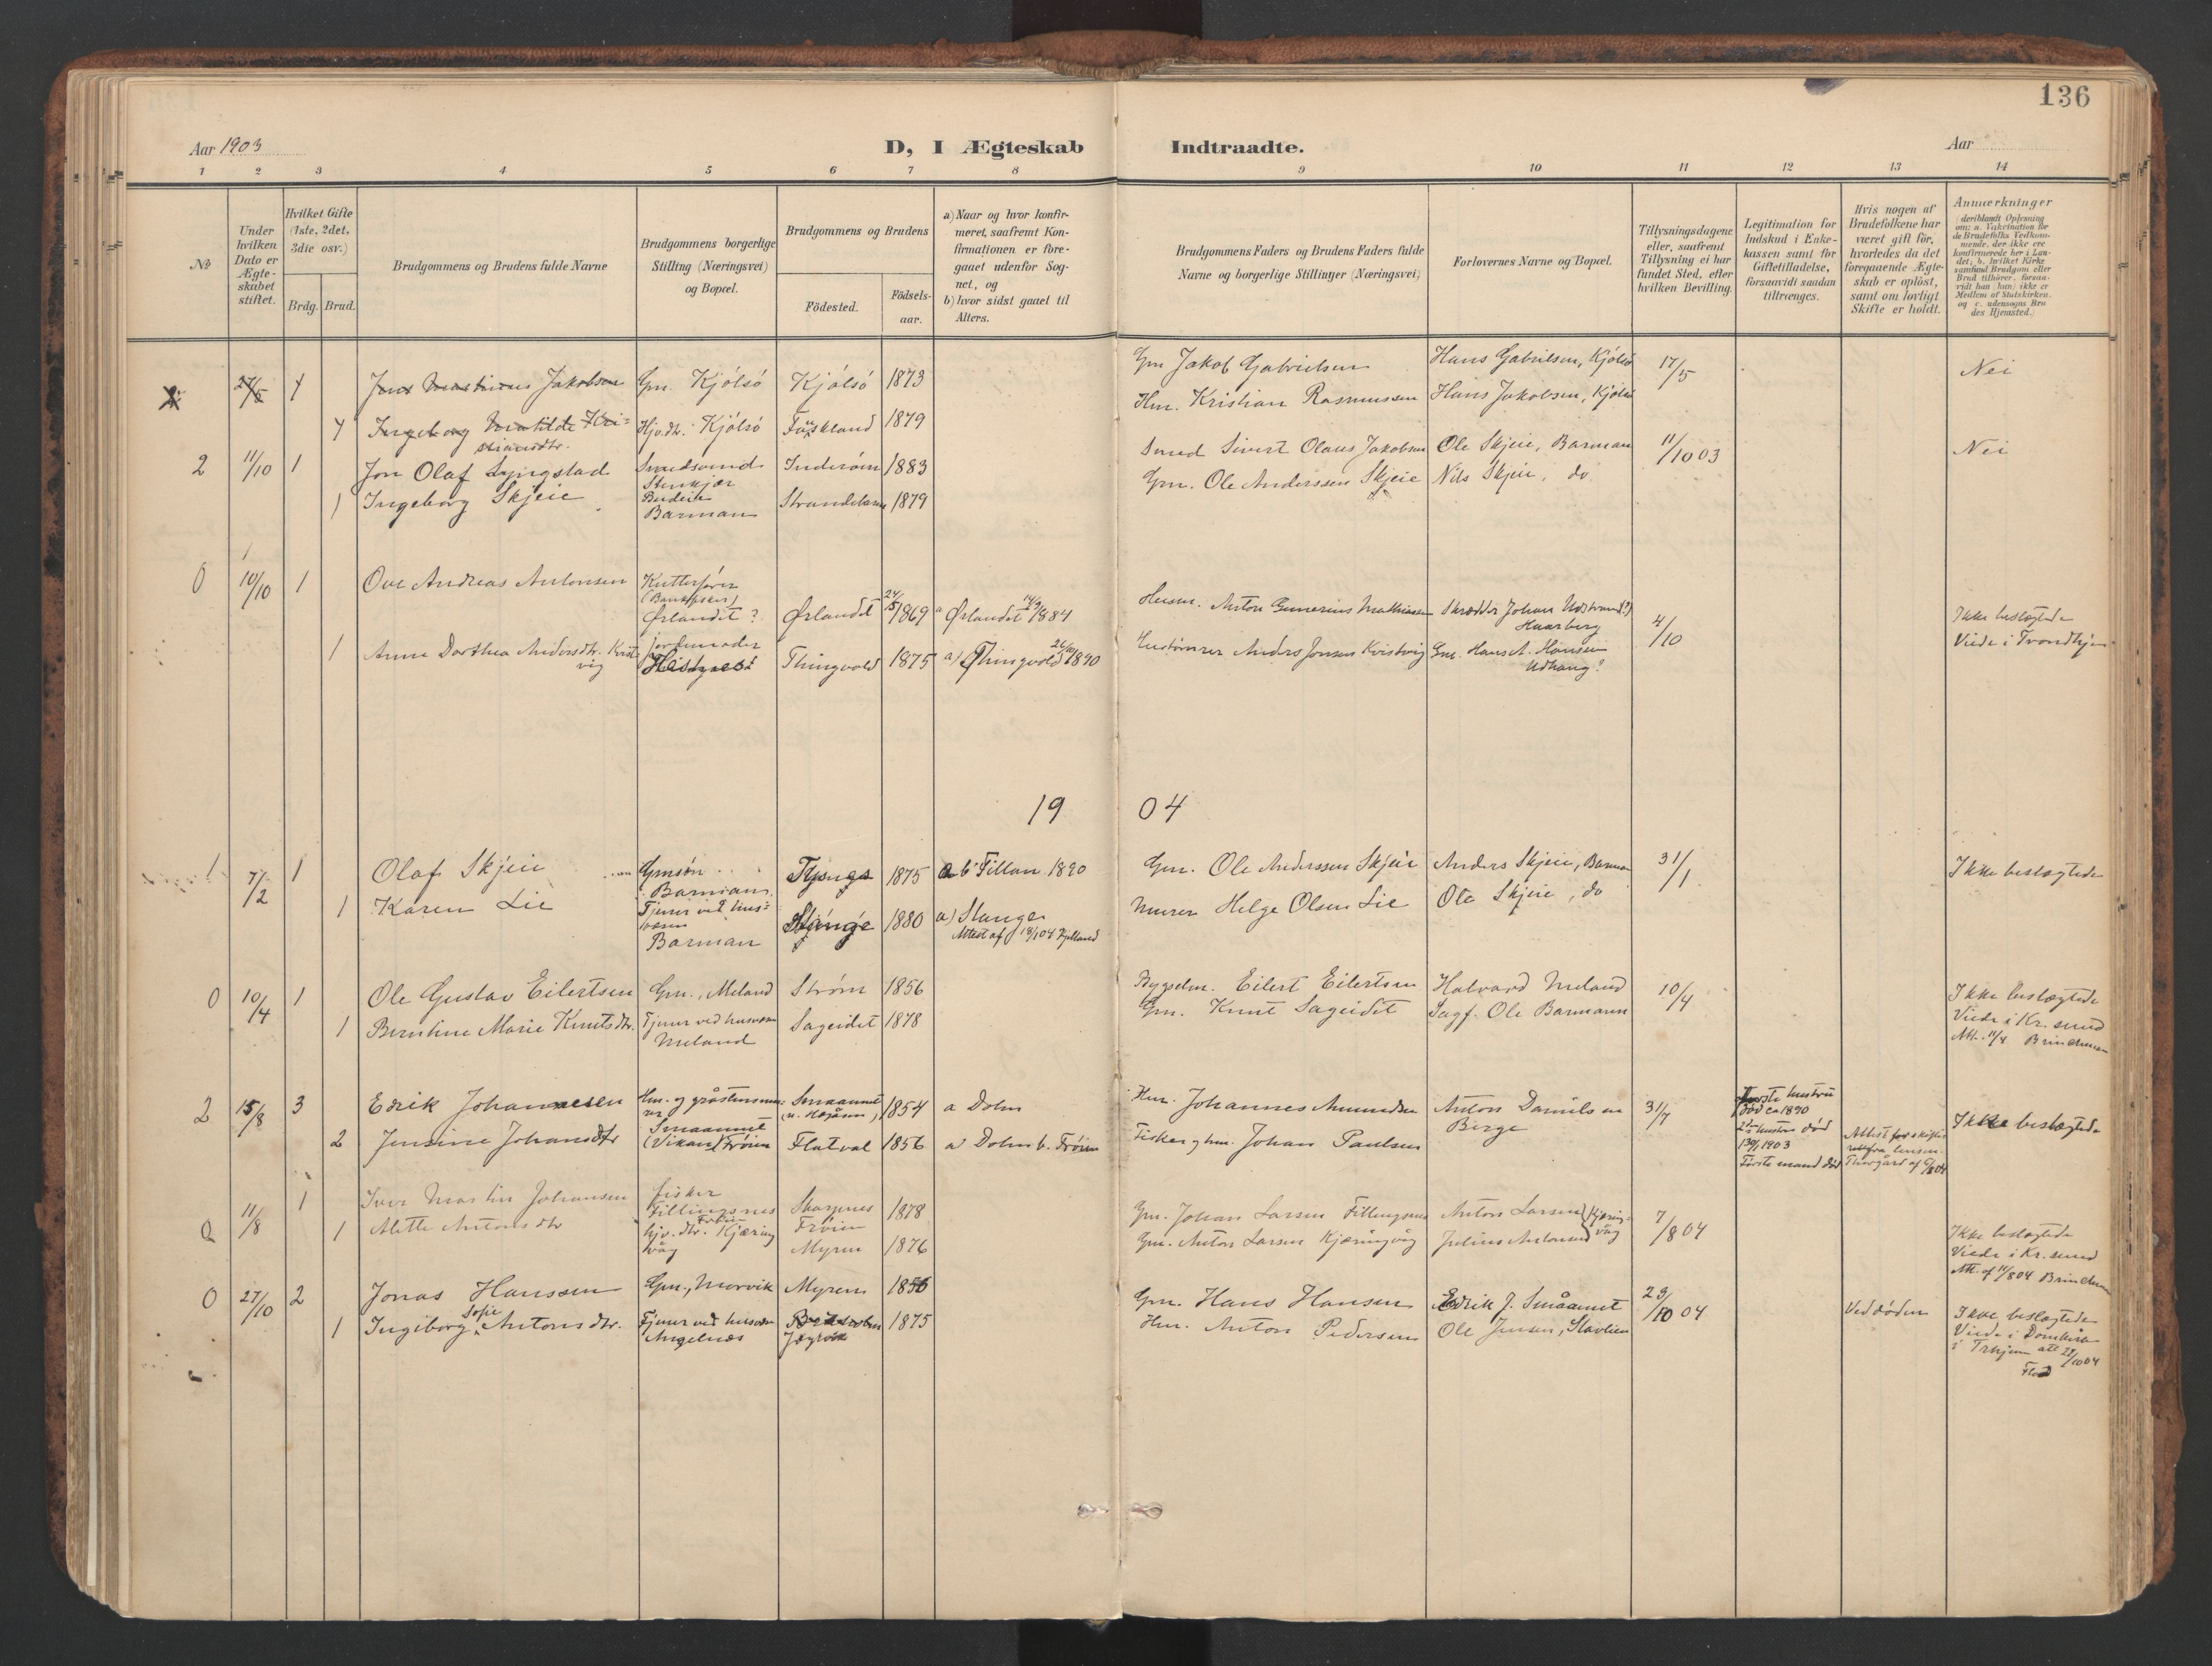 136
Aar 1903
D, I Ægteskab Indtraadte.
Aar
1 2 3 4 5 6 7 8 9 10 11 12 13 14
No
Under hvilken Dato er Ægte-skabet stiftet.
Hvilket Gifte (1ste, 2det, 3die osv.)
Brdg. Brud.
Brudgommens og Brudens fulde Navne
Brudgommens borgerlige Stilling (Næringsvei) og Bopæl.
Brudgommens og Brudens
Fødested.
Fødsels-aar.
a) Naar og hvor konfir-meret, saafremt Kon-firmationen er fore-gaaet udenfor Sog-net, og
b) hvor sidst gaaet til Alters.
Brudgommens Faders og Brudens Faders fulde Navne og borgerlige Stillinger (Næringsvei)
Forlovernes Navne og Bopæl.
Tillysningsdagene eller, saafremt Tillysning ei har fundet Sted, efter hvilken Bevilling.
Legitimation for Indskud i Enke-kassen samt for Giftetilladelse, forsaavidt saadan tiltrænges.
Hvis nogen af Brudefolkene har været gift før, hvorledes da det foregaaende Ægte-skab er opløst, samt om lovligt Skifte er holdt.
Anmerkninger
(deriblandt Oplysning om: a. Vakcination for de Brudefolks Vedkom-mende, der ikke ere konfirmerede her i Lan-det; b. hvilket Kirke-samfund Brudgom eller Brud tilhører, forsaa-vidt han (hun) ikke er Medlem af Statskirken, og c. udensogns Bru-des Hjemsted.)
27/5 1 Jens Martinus Jakobsen Gm. Kjölsö Kjölsö 1873 Gm Jakob Gabrielsen Hans Gabrielsen, Kjölsö 17/5 Nei
1 Ingeborg Matilde Kri-
stiansdtr. Hjv.dtr. Kjölsö 1879 Hm. Kristian Rasmussen Hans Jakobsen, Kjölsö
2 11/10 1 Jon Olaf Lyngstad Smedsvend
Stenkjær Inderöen 1883 Smed Sivert Olaus Jakobsen Ole Skjeie, Barman 11/10 03 Nei
1 Ingeborg Skjeie Budeie
Barman 1879 Gm. Ole Anderssen Skjeie Nils Skjeie, do
0 10/10 1 Ove Andreas Antonsen
Ørlandet? Ørlandet 1869 a Ørlandet 1884 Husm. Anton Gunerius Mathiassen Skrædder Johan
Haarberg 4/10 Ikke beslægtede
Viede i Trondhjem
1 Anne Dorthea Andersdtr. Krist-
vig jordemoder
Thingvold 1875 a) Thingvold 1890 Anders Jonsen Kristvig Gm. Hans A. Hansen
Udhaug?
1904
1 7/2 1 Olaf Skjeie Gmsøn
Barman 1875 a b Fillan 1890 Gm. Ole Anderssen Skjeie Anders Skjeie, Barman 31/1 Ikke beslægtede
1 Karen Lie Tjener ved hus-
væsen
Barman Stange 1880 a) Stange
Attest af 18/1 04 Kjelland Murer Helge Olsen Lie Ole Skjeie, do
0 10/4 1 Ole Gustav Eilertsen Gm., Meland Ström 1856 Bygselm. Eilert Eilertsen Halvard Meland 10/4 Ikke beslægtede
Viede i Kr.sund
Att. 11/4 Brinchman
1 Berntine Marie Knutsdtr. Tjener ved husvæsen
Meland Sageidet 1878 Gm. Knut Sageidet Sagf. Ole Barmann
2 15/8 3 Edrik Johannesen Hm. og gråstensmu-
rer
Smaamnet 1854 a Dolm Hm. Johannes Amundsen Anton Danielsen
Berge 31/7 Første hustru
død ca 1890
2den hustru død
1903
Første mand død Ikke beslægtede
2 Jensine Johansdtr (Vikan) Frøien Flatval 1856 a Dolm b. Frøien Fisker og hm. Johan Paulsen
11/8 1 Iver Martin Johansen fisker
Fillingsnes
Frøien Skarpnes
Frøien 1878 Gm. Johan Larsen Fillingsnes Anton Larsen Kjæring-
våg 7/8 04 Ikke beslægtede
Viede i Kr.sund
Att. af 11/8 04 Brinchman
1 Alette Antonsdtr hjv. dtr. Kjæring
våg Myren 1876 Gm. Anton Larsen Kjæringvåg Julius Antonsen
0 27/10 2 Jonas Hanssen Gm., Morvik Myren 1856 Gm. Hans Hansen Edrik J. Småamnet 23/10 04 Ved döden Ikke beslægtede
Viede i Domkirken
i Trhjem att 27/10 04
1 Ingeborg Sofie Antonsdtr. Tjener ved husvæsen
Angelnæs 1875 Hm. Anton Pedersen Ole Jensen, Slavlien